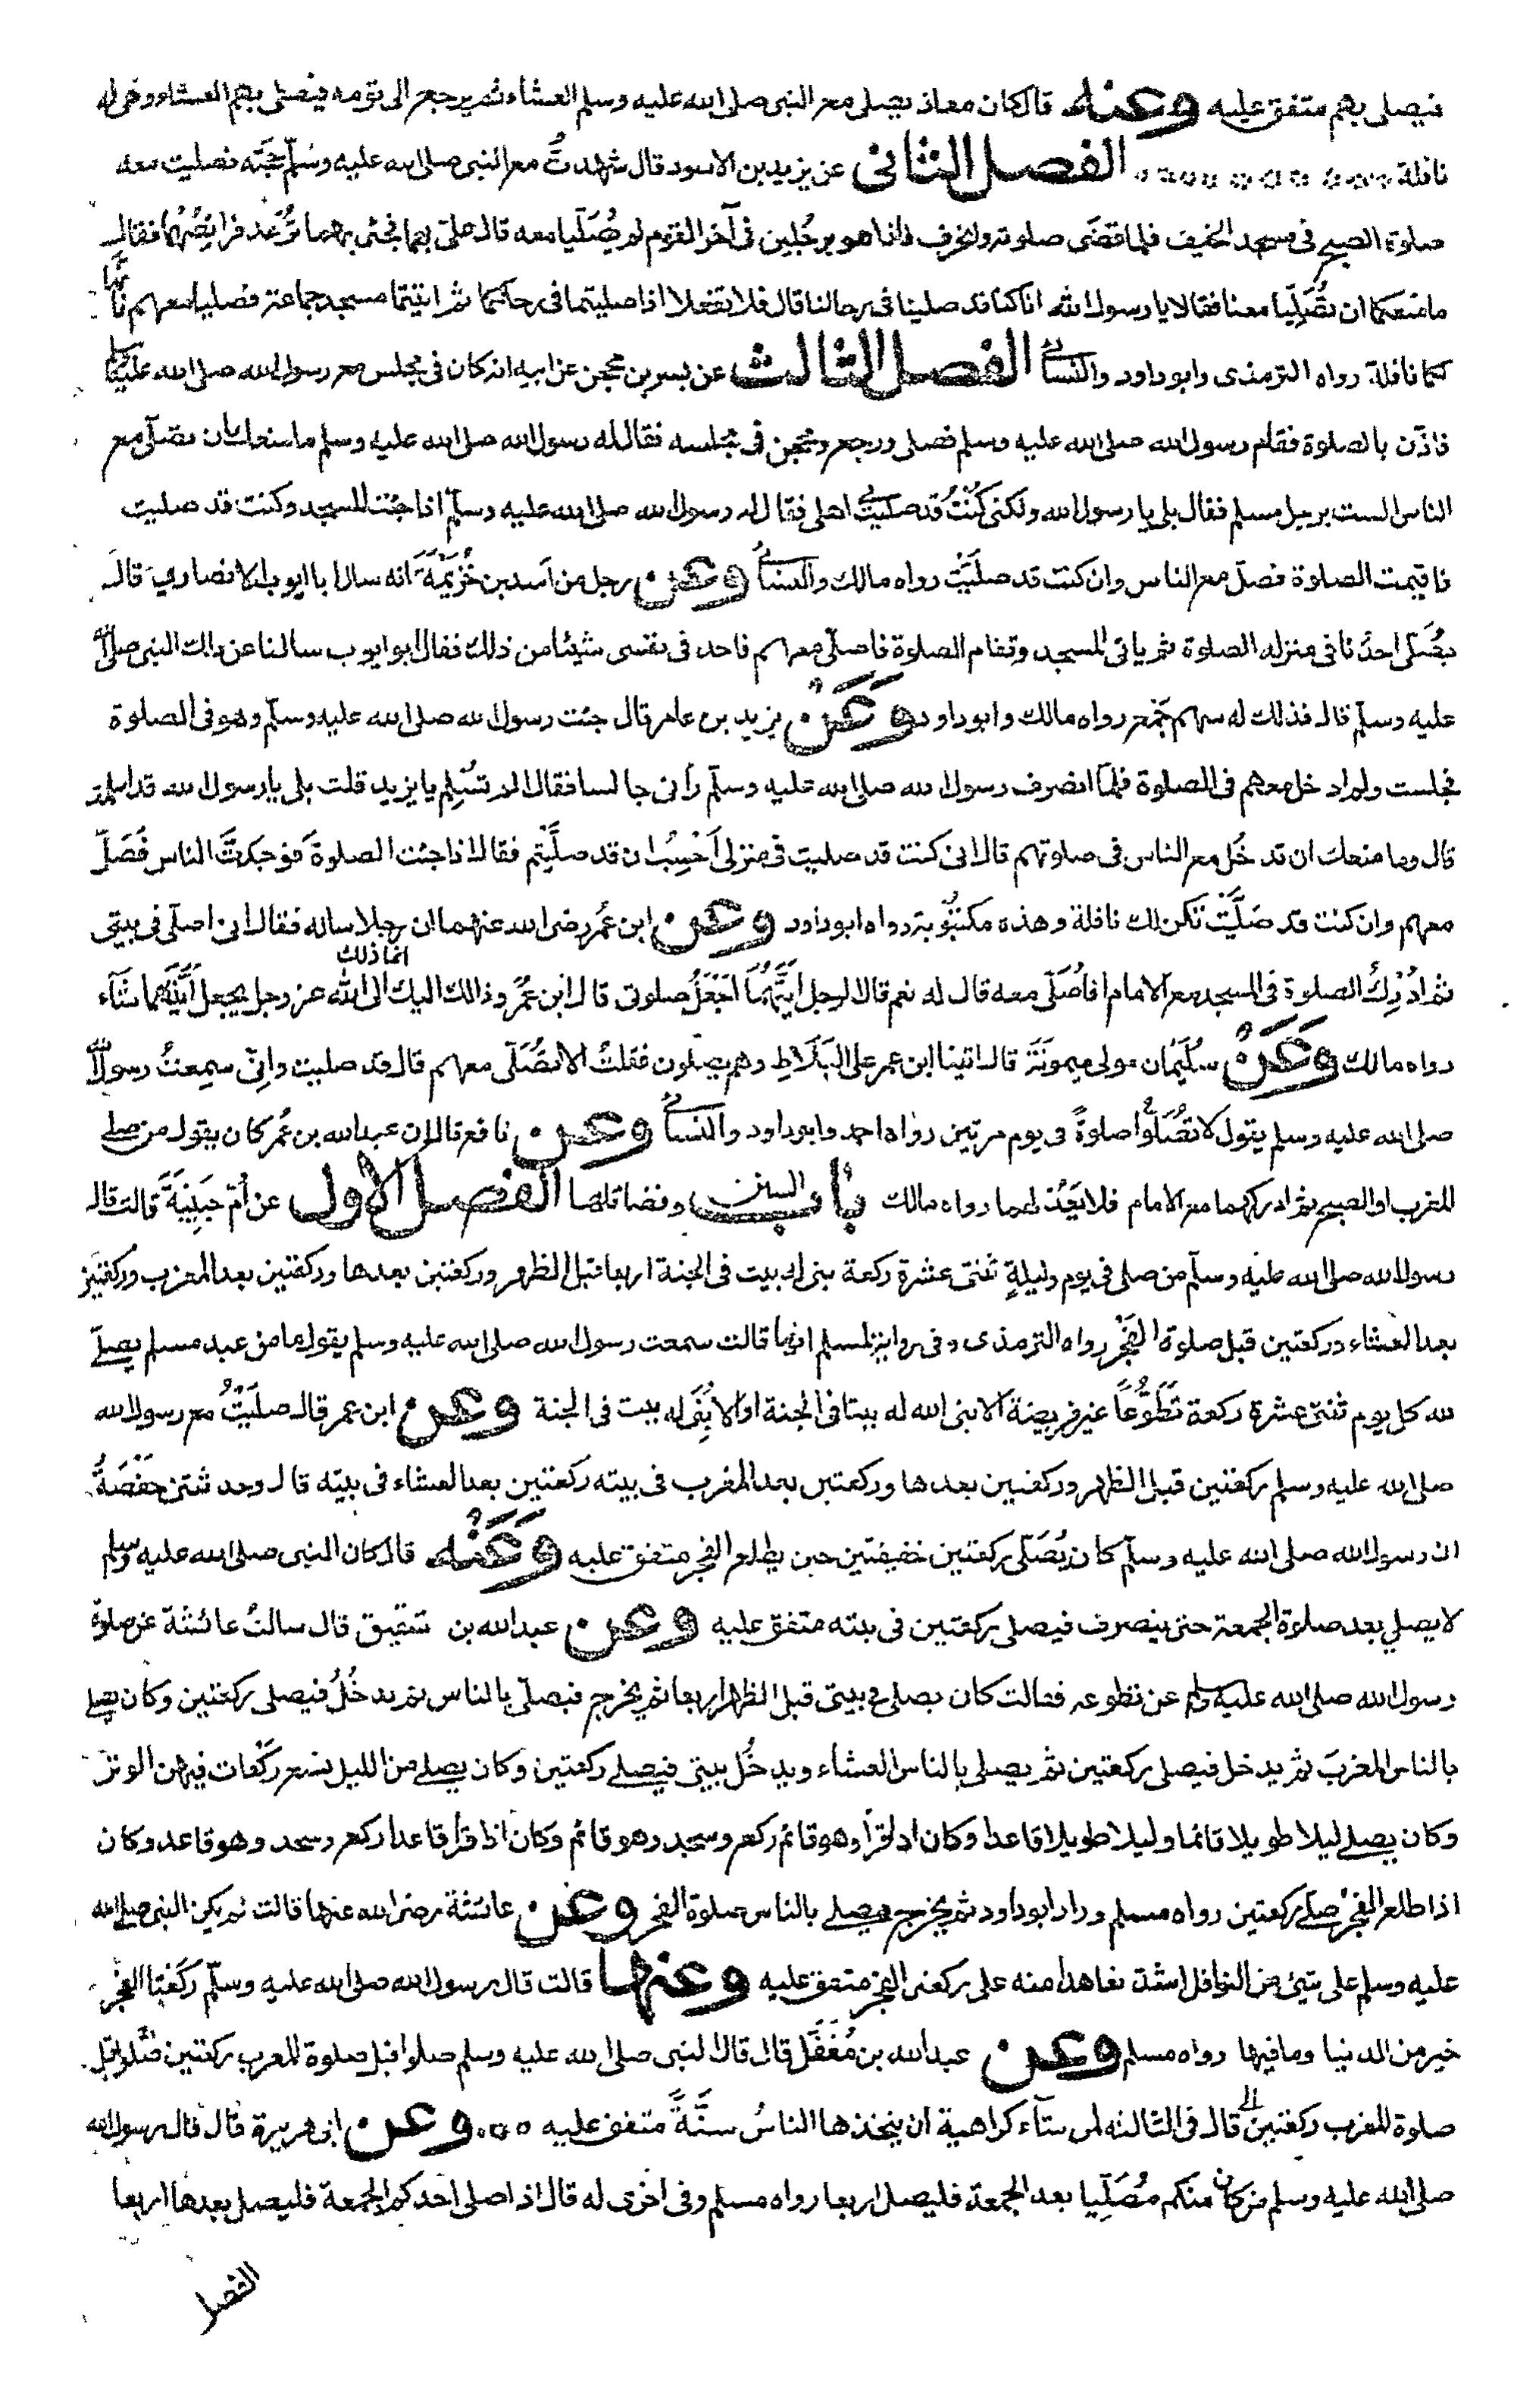 فيصلى بهم متفق عليه وعنه قال كان معاذ يصلى مع النبى صلى الله عليه وسلم العشاء ثم يرجع الى قومه فيصلى بهم العشاء وهى له
نافلة الفصل الثانى عن يزيد بن الاسود قال شهدتُ مع النبى صلى الله عليه وسلّم حجّته فصليت معه
صلوة الصبح فى مسجد الخيف فلما قضَى صلوته وانحرف فاذا هو برجُلين فى آخر القوم لم يُصَلّيا معه قال علىّ بهما فجئ بهما تُرعَد فرائِصُهُما فقال
ما منعكما ان تُصَلِّيا معنا فقالا يا رسول الله انا كنا قد صلينا فى رحالنا قال فلا تفعلا اذا صليتما فى رحالكما ثم اتيتما مسجد جماعة فصليا معهم فانها
لكما نافلة رواه الترمذى وابوداود والنسائے الفصل الثالث عن بسر بن محجن عن ابيه انه كان فى مجلس مع رسول الله صلى الله عليه وسلم
فاذّن بالصلوة فقام رسول الله صلى الله عليه وسلم فصلى ورجع ومحجن فى مجلسه فقال له رسول الله صلى الله عليه وسلم ما منعك ان تصلّى مع
الناس الست برجل مسلم فقال بلى يا رسول الله ولكنى كُنْتُ قد صليتُ فے اهلى فقال له رسول الله صلى الله عليه وسلّم اذا جئت المسجد وكنت قد صليت
فاقيمت الصلوة فصلّ مع الناس وان كنت قد صلّيْتَ رواه مالك والنسائے وعن رجل من اسد بن خُزَيْمَةَ انه سال ابا ايوب الانصارى قال
يُصَلّى احدُنا فى منزله الصلوة ثم ياتى المسجد وتقام الصلوة فاصلّى معهم فاجد فى نفسى شيئا من ذلك فقال ابو ايوب سالنا عن ذلك النبى صلى الله
عليه وسلّم قال فذلك له سهم جَمْع رواه مالك وابوداود وَعَنْ يزيد بن عامر قال جئت رسول الله صلى الله عليه وسلّم وهو فى الصلوة
فجلست ولم ادخل معهم فى الصلوة فلمّا انصرف رسول الله صلى الله عليه وسلّم رأنى جالسا فقال الم تُسْلِم يا يزيد قلت بلى يا رسول الله قد اسلمت
قال وما منعك ان تدخُل مع الناس فى صلوتهم قال انى كنت قد صليت فى منزلى اَحْسِبُ ان قد صلَّيْتم فقال اذا جئت الصلوة فوَجَدتَّ الناس فَصَلِّ
معهم وان كنت قد صَلَّيْتَ تكن لك نافلة وهذه مكتوُبة رواه ابوداود وعن ابن عُمر رضى الله عنهما ان رجلا ساله فقال انى اصلّى فى بيتى
ثم اُدْرِكُ الصلوة فى المسجد مع الامام افاُصَلّى معه قال له نعم قال الرجل اَيَّتَهُمَا اَجْعَلُ صلوتى قال ابن عُمَر وذالك اليك انما ذلك الى الله عز وجل يجعل اَيَّتَهُما شآء
رواه مالك وَعَنْ سُلَيْمَان مولى ميمونَةَ قال اتينا ابن عمر على البَلَاطِ وهم يصلون فقلتُ الا تُصَلّى معهم قال قد صليت وانّى سمِعتُ رسول الله
صلى الله عليه وسلم يقول لا تُصَلُّوا صلوةً فى يوم مرتين رواه احمد وابوداود والنسائے وعن نافع قال ان عبد الله بن عُمر كان يقول من صلے
المغرب او الصبح ثم ادركهما مع الامام فلا يَعُدْ لهما رواه مالك باب السنن وفضائلها الفصل الاول عن اُمّ حَبِيْبَةَ قالت قال
رسول الله صلى الله عليه وسلّم من صلى فى يوم وليلةٍ ثنتى عشرة ركعة بنى له بيت فى الجنة اربعا قبل الظهر وركعتين بعدها وركعتين بعد المغرب وركعتين
بعد العشاء وركعتين قبل صلوة الفَجْر رواه الترمذى وفى رواية لمسلم انها قالت سمعت رسول الله صلى الله عليه وسلم يقول ما من عبد مسلم يصلّے
لله كل يوم ثنتى عشرة ركعة تَطَوُّعاً غير فريضة الا بنى الله له بيتا فى الجنة او الا بُنِىَ له بيت فى الجنة وعن ابن عمر قال صليْتُ مع رسول الله
صلى الله عليه وسلم ركعتين قبل الظهر وركعتين بعدها وركعتين بعد المغرب فى بيته ركعتين بعد العشاء فى بيته قال وحدثتنى حَفْصَةُ
ان رسول الله صلى الله عليه وسلّم كان يُصَلّى ركعتين خفيفتين حين يطلع الفجر متفق عليه وَعَنْه قال كان النبى صلى الله عليه وسلم
لا يصلي بعد صلوة الجمعة حتى ينصرف فيصلى ركعتين فى بيته متفق عليه وعن عبد الله بن شقيق قال سالتُ عائشة عن صلوة
رسول الله صلى الله عليه وسلم عن تطوعه فقالت كان يصلى فى بيتى قبل الظهر اربعا ثم يخرج فيصلّى بالناس ثم يدخُلُ فيصلى ركعتين وكان يصلے
بالناس المغربَ ثم يدخل فيصلى ركعتين ثم يصلى بالناس العشاء ويدخُل بيتى فيصلے ركعتين وكان يصلے من الليل تسع ركْعات فيهن الوتر
وكان يصلے ليلا طويلا قائما وليلا طويلا قاعدا وكان اذا قرأ وهو قائم ركع وسجد وهو قائم وكان اذا قرأ قاعدا ركع وسجد وهو قاعد وكان
اذا طلع الفجر صلے ركعتين رواه مسلم وزاد ابوداود ثم يخرج فيصلے بالناس صلوة الفجر وعن عائشة رضى الله عنها قالت لم يكن النبى صلى الله
عليه وسلم على شئ من النوافل اشد تعاهدا منه على ركعتى الفجر متفق عليه وعنها قالت قال رسول الله صلى الله عليه وسلّم ركعَتا الفجر
خير من الدنيا وما فيها رواه مسلم وعن عبد الله بن مُغَفَّل قال قال النبى صلى الله عليه وسلم صلوا قبل صلوة المغرب ركعتين صلّوا قبل
صلوة المغرب ركعتين قال فى الثالثة لمن شآء كراهية ان يتخذها الناسُ سنَّةً متفق عليه وعن ابى هريرة قال قال رسول الله
صلى الله عليه وسلم من كان منكم مُصَلِّيا بعد الجمعة فليصل اربعا رواه مسلم وفى اخرى له قال اذا صلى احدكم الجمعة فليصل بعدها اربعا
الفصل